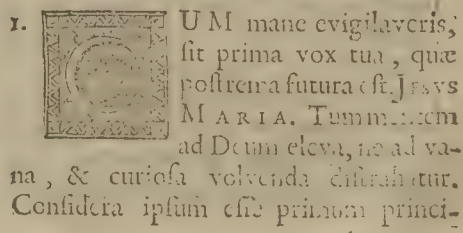 1. CUM mane evigilaveris,
sit prima vox tua, quæ
postrema futura est. JESVS
MARIA. Tum mentem
ad Deum eleva, ne ad va-
na, & curiosa volvenda distrahatur.
Considera ipsum esse primum princi-